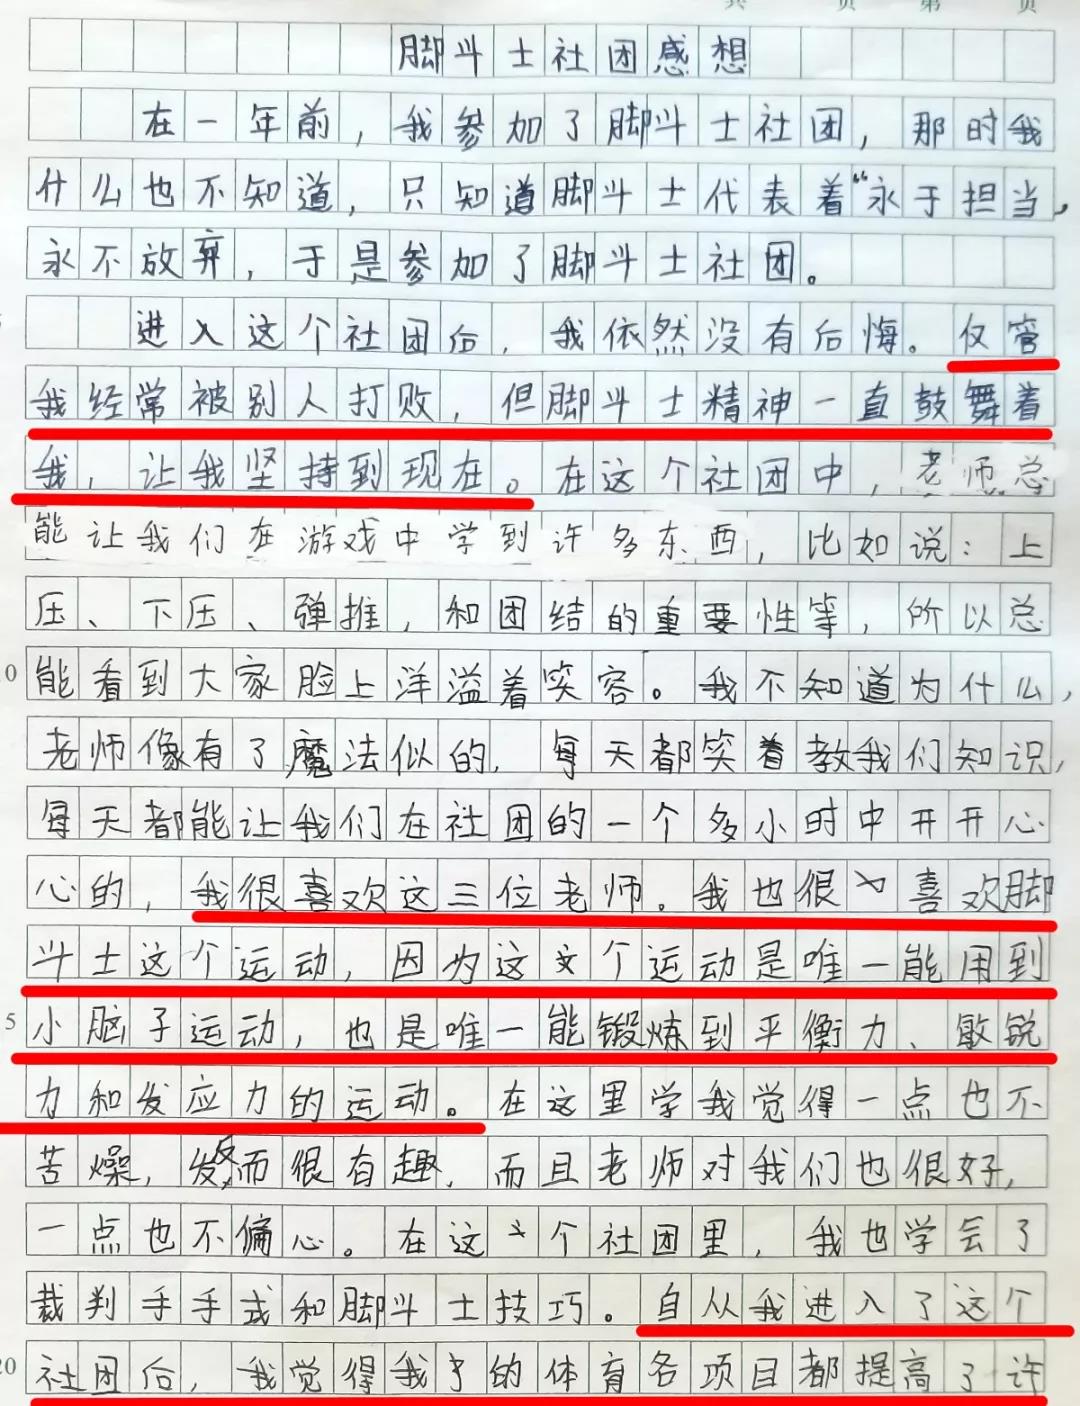 共 页 第 页
脚斗士社团感想
在一年前，我参加了脚斗士社团，那时我
什么也不知道，只知道脚斗士代表着“永于担当，
永不放弃，于是参加了脚斗士社团。
进入这个社团后，我依然没有后悔。仅管
我经常被别人打败，但脚斗士精神一直鼓舞着
我，让我坚持到现在。在这个社团中，老师总
能让我们在游戏中学到许多东西，比如说：上
压、下压、弹推，和团结的重要性等，所以总
10 能看到大家脸上洋溢着笑容。我不知道为什么，
老师像有了魔法似的，每天都笑着教我们知识，
每天都能让我们在社团的一个多小时中开开心
心的，我很喜欢这三位老师。我也很喜欢脚
斗士这个运动，因为这个运动是唯一能用到
5 小脑子运动，也是唯一能锻炼到平衡力、敏锐
力和发应力的运动。在这里学我觉得一点也不
苦燥，反而很有趣，而且老师对我们也很好，
一点也不偏心。在这个社团里，我也学会了
裁判手手式和脚斗士技巧。自从我进入了这个
20 社团后，我觉得我的体育各项目都提高了许